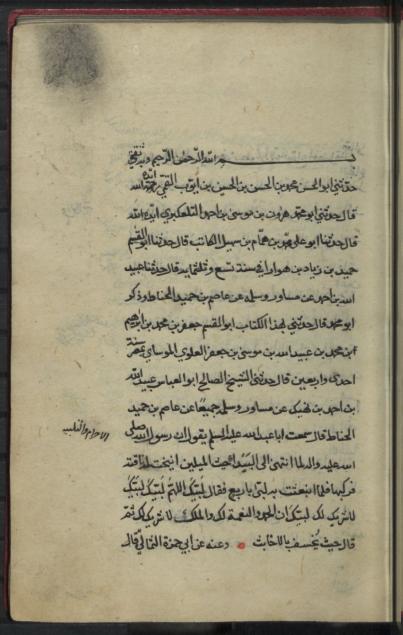 بسم الله الرحمن الرحيم وبه ثقتي
حدثني ابو الحسن محمد بن الحسن بن الحسين بن ايوب القمي ايده الله
قال حدثني ابو محمد هرون بن موسى بن احمد التلعكبري ايده الله
قال حدثنا ابو علي محمد بن همام بن سهيل الكاتب قال حدثنا ابو القسم
حميد بن زياد بن هوارا في سنة تسع وثلثمايه قال حدثنا عبيد
الله بن احمد عن مساور وسلمه عن عاصم بن حميد الحناط وذكر
ابو محمد قال حدثني بهذا الكتاب ابو القسم جعفر بن محمد بن ابرهيم
ابن محمد بن عبيد الله بن موسى بن جعفر العلوي الموساي بمصر سنة
احدى واربعين قال حدثني الشيخ الصالح ابو العباس عبيد الله
بن احمد بن نهيك عن مساور وسلمه جميعا عن عاصم بن حميد
الحناط قال سمعت ابا عبد الله عليه السلم يقول ان رسول الله صلى
الله عليه واله لما انتهى الى البيداء حيث الميلين انيخت له ناقته
فركبها فلما انبعثت به لبى باربع فقال لبيك اللهم لبيك لبيك
لا شريك لك لبيك ان الحمد والنعمة لك والملك لا شريك لك ثم
قال حيث يخسف بالاخابث وعنه عن ابي حمزة الثمالي قال
الاحرام والتلبيه